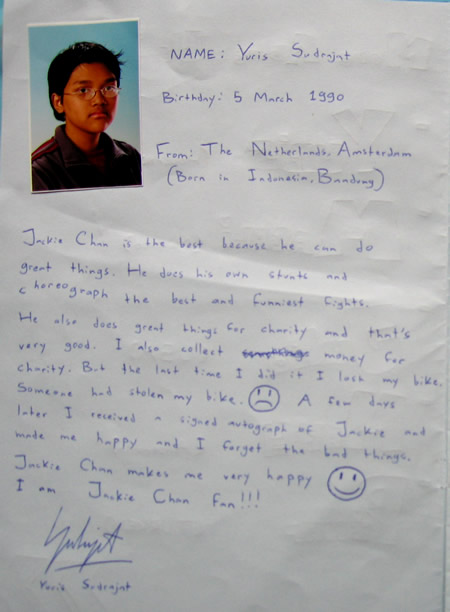 NAME: Yuris Sudrajat
Birthday: 5 March 1990
From: The Netherlands, Amsterdam
(Born in Indonesia, Bandung)
Jackie Chan is the best because he can do
great things. He does his own stunts and
choreograph the best and funniest fights.
He also does great things for charity and that's
very good. I also collect money for
charity. But the last time I did it I lost my bike.
Someone had stolen my bike. A few days
later I received a signed autograph of Jackie and
made me happy and I forget the bad things.
Jackie Chan makes me very happy
I am Jackie Chan Fan!!!
Yuris Sudrajat